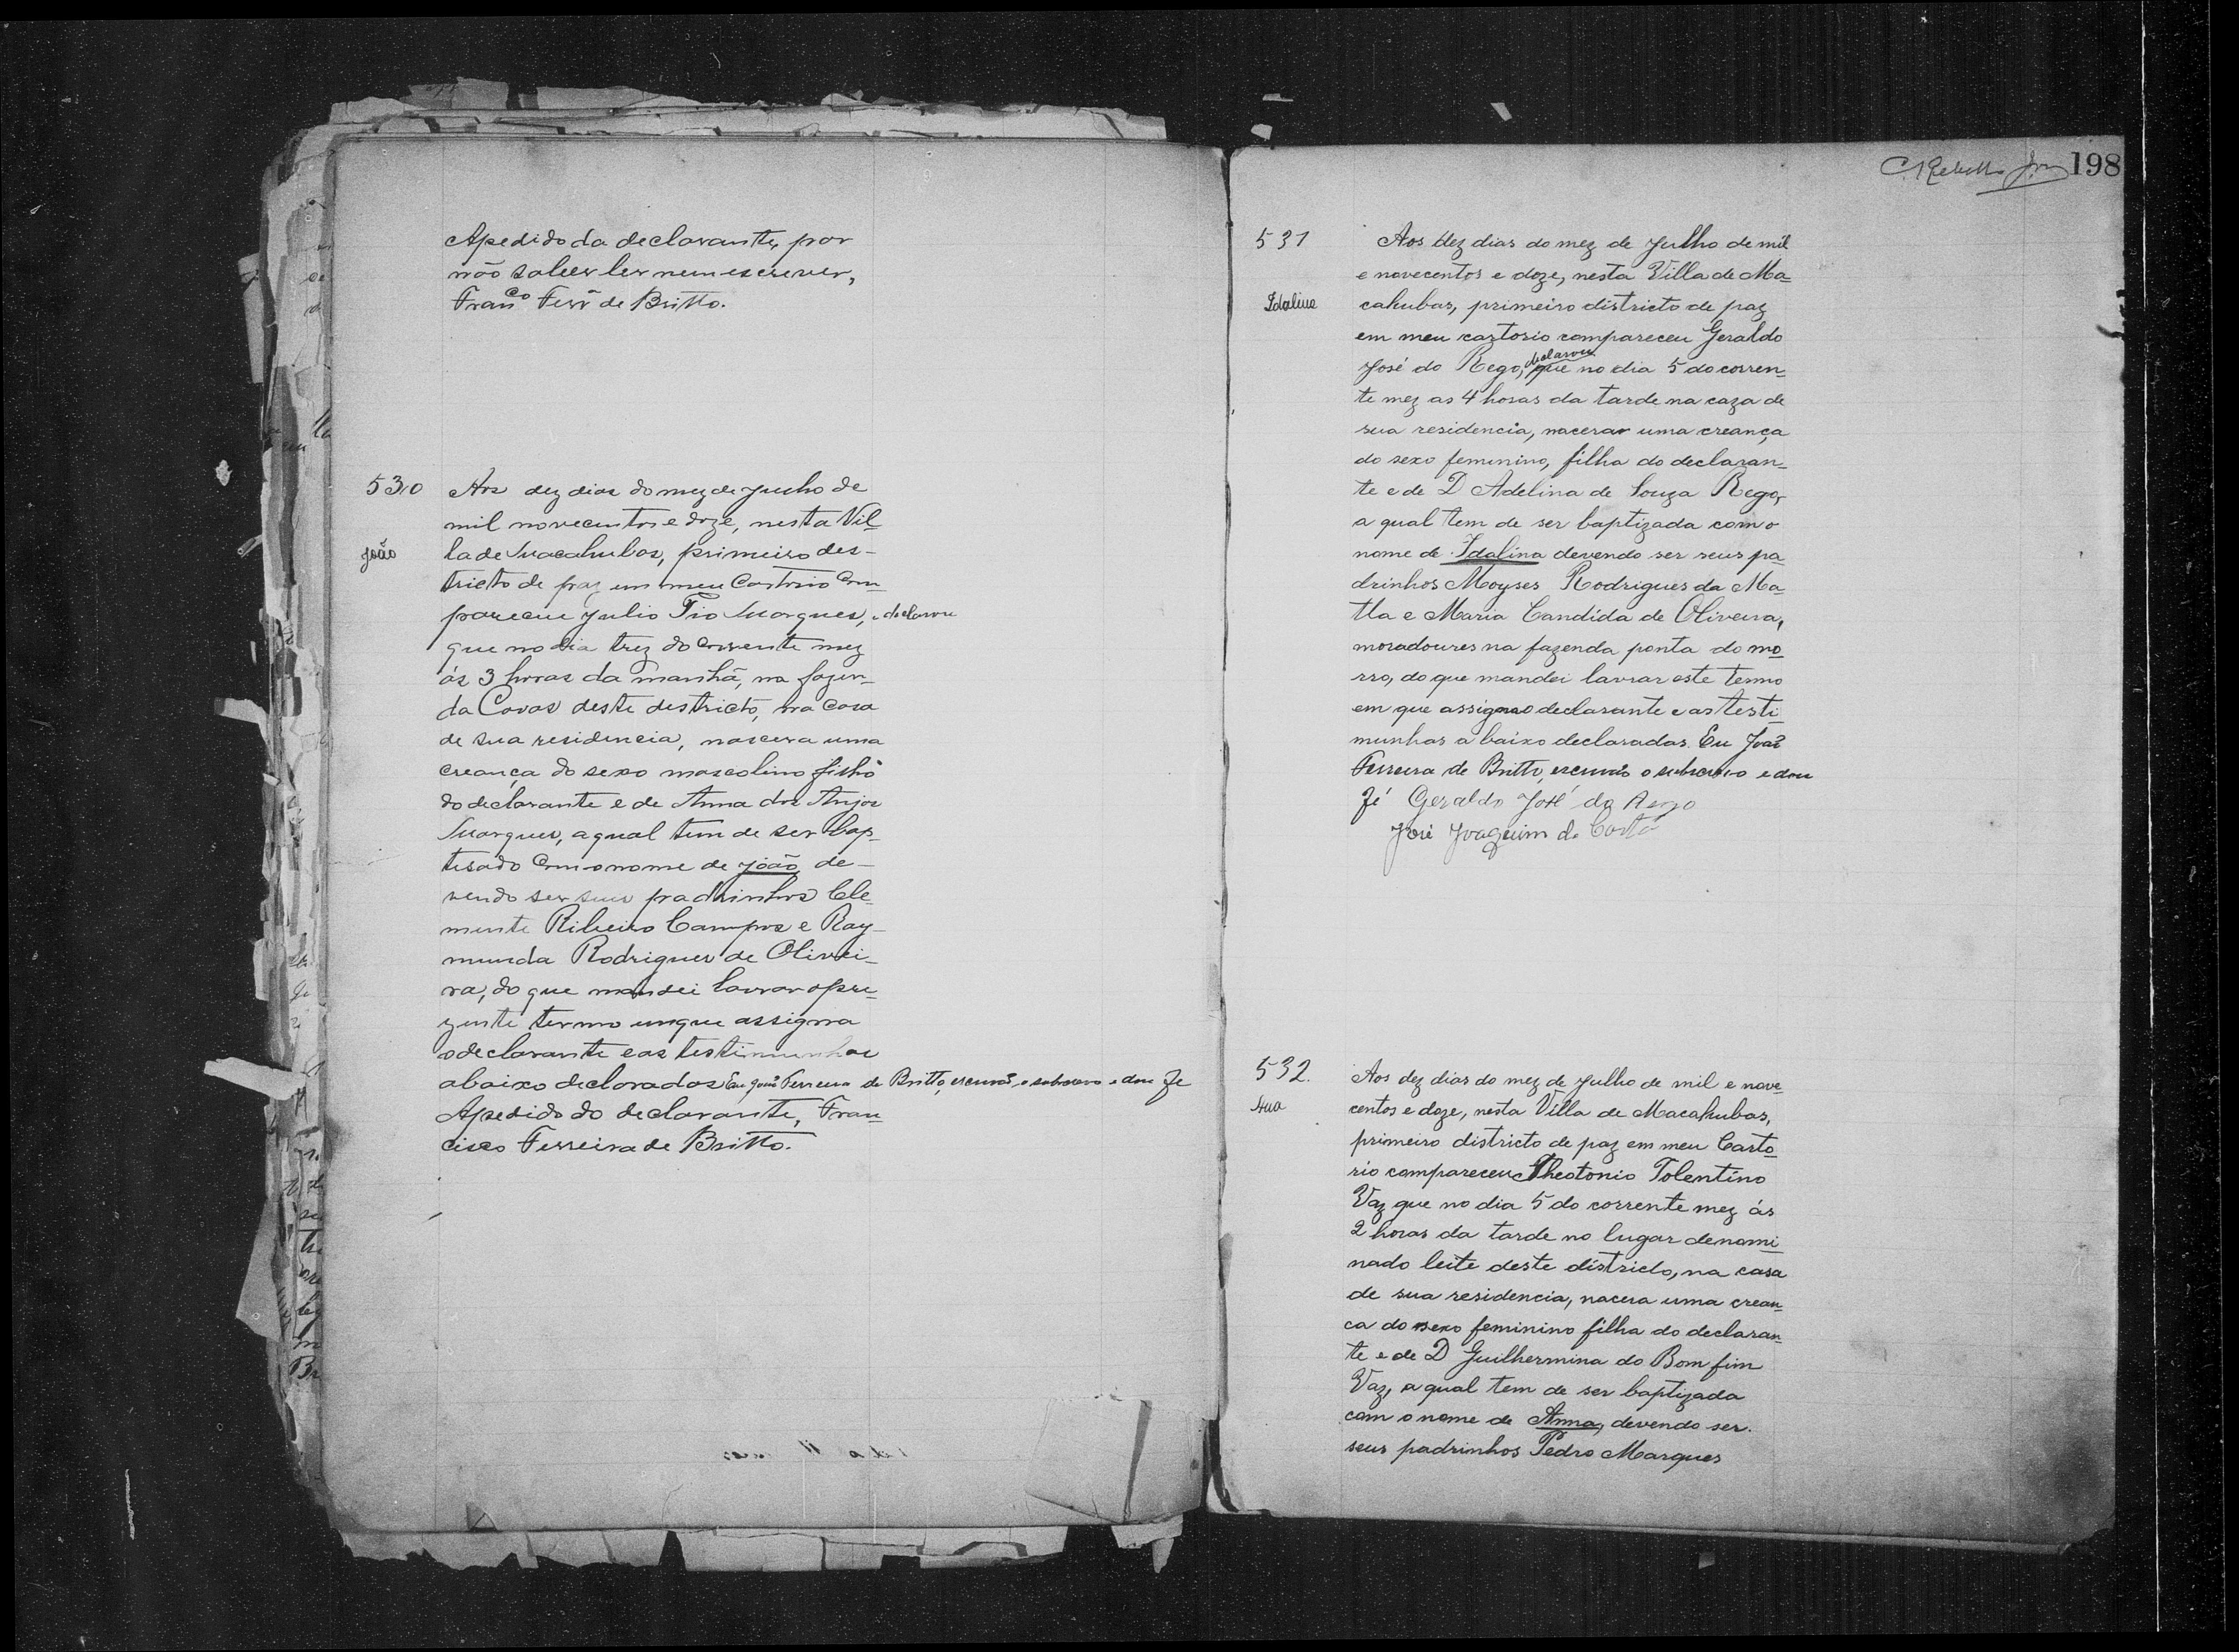 Apedido da declarante, por
não saber ler nem escrever,
Franco Ferrª de Britto.
530 Aos dez dias do mez de Junho de
mil novecentos e doze, nesta Vil-
João la de Macahubas, primeiro des-
tricto de paz em meu Cartorio Com-
pareceu Julio Tio Marques, e declarou
que no dia trez do Corrente mez
ás 3 horas da manhã, na fazen-
da Covas deste destricto, na Casa
de sua residencia, nascera uma
creança do sexo mascolino filho
do declarante e de Anna dos Anjos
Marques, a qual tem de ser bap-
tisado Com o nome de João, de-
vendo ser seus padrinhos Cle-
mente Ribeiro Campos e Ray-
munda Rodrigues de Olivei-
ra, do que mandei lavrar o pre-
zente termo em que assigna
o declarante e as testimunhas
abaixo declaradas Eu João Ferreira de Britto, escrivão, o subscrevo e dou fé
Apedido do declarante, Fran-
cisco Ferreira de Britto.
198
531 Aos dez dias do mez de Julho de mil
e novecentos e doze, nesta Villa de Ma-
Idalina cahubas, primeiro districto de paz
em meu cartorio compareceu Geraldo
declarou
José do Rego, que no dia 5 do corren-
te mez as 4 horas da tarde na caza de
sua residencia, nacera uma creança
do sexo feminino, filha do declaran-
te e de D Adelina de Souza Rego,
a qual tem de ser baptizada com o
nome de Idalina devendo ser seus pa-
drinhos Moyses Rodrigues da Ma-
tta e Maria Candida de Oliveira,
moradoures na fazenda ponta do mo-
rro, do que mandei lavrar este termo
em que assigna o declarante e as testi-
munhas abaixo declaradas. Eu João
Ferreira de Britto, escrivão o subscrevo e dou
fé Geraldo José do Rego
José Joaquim da Costa
532. Aos dez dias do mez de Julho de mil e nove-
Ana centos e doze, nesta Villa de Macahubas,
primeiro districto de paz em meu Carto-
rio compareceu Theotonio Tolentino
Vaz que no dia 5 do corrente mez ás
2 horas da tarde no lugar denomi-
nado leite deste districto, na casa
de sua residencia, nacera uma crean-
ca do sexo feminino filha do declaran-
te e de D Guilhermina do Bom fim
Vaz, a qual tem de ser baptizada
com o nome de Anna, devendo ser.
seus padrinhos Pedro Marques